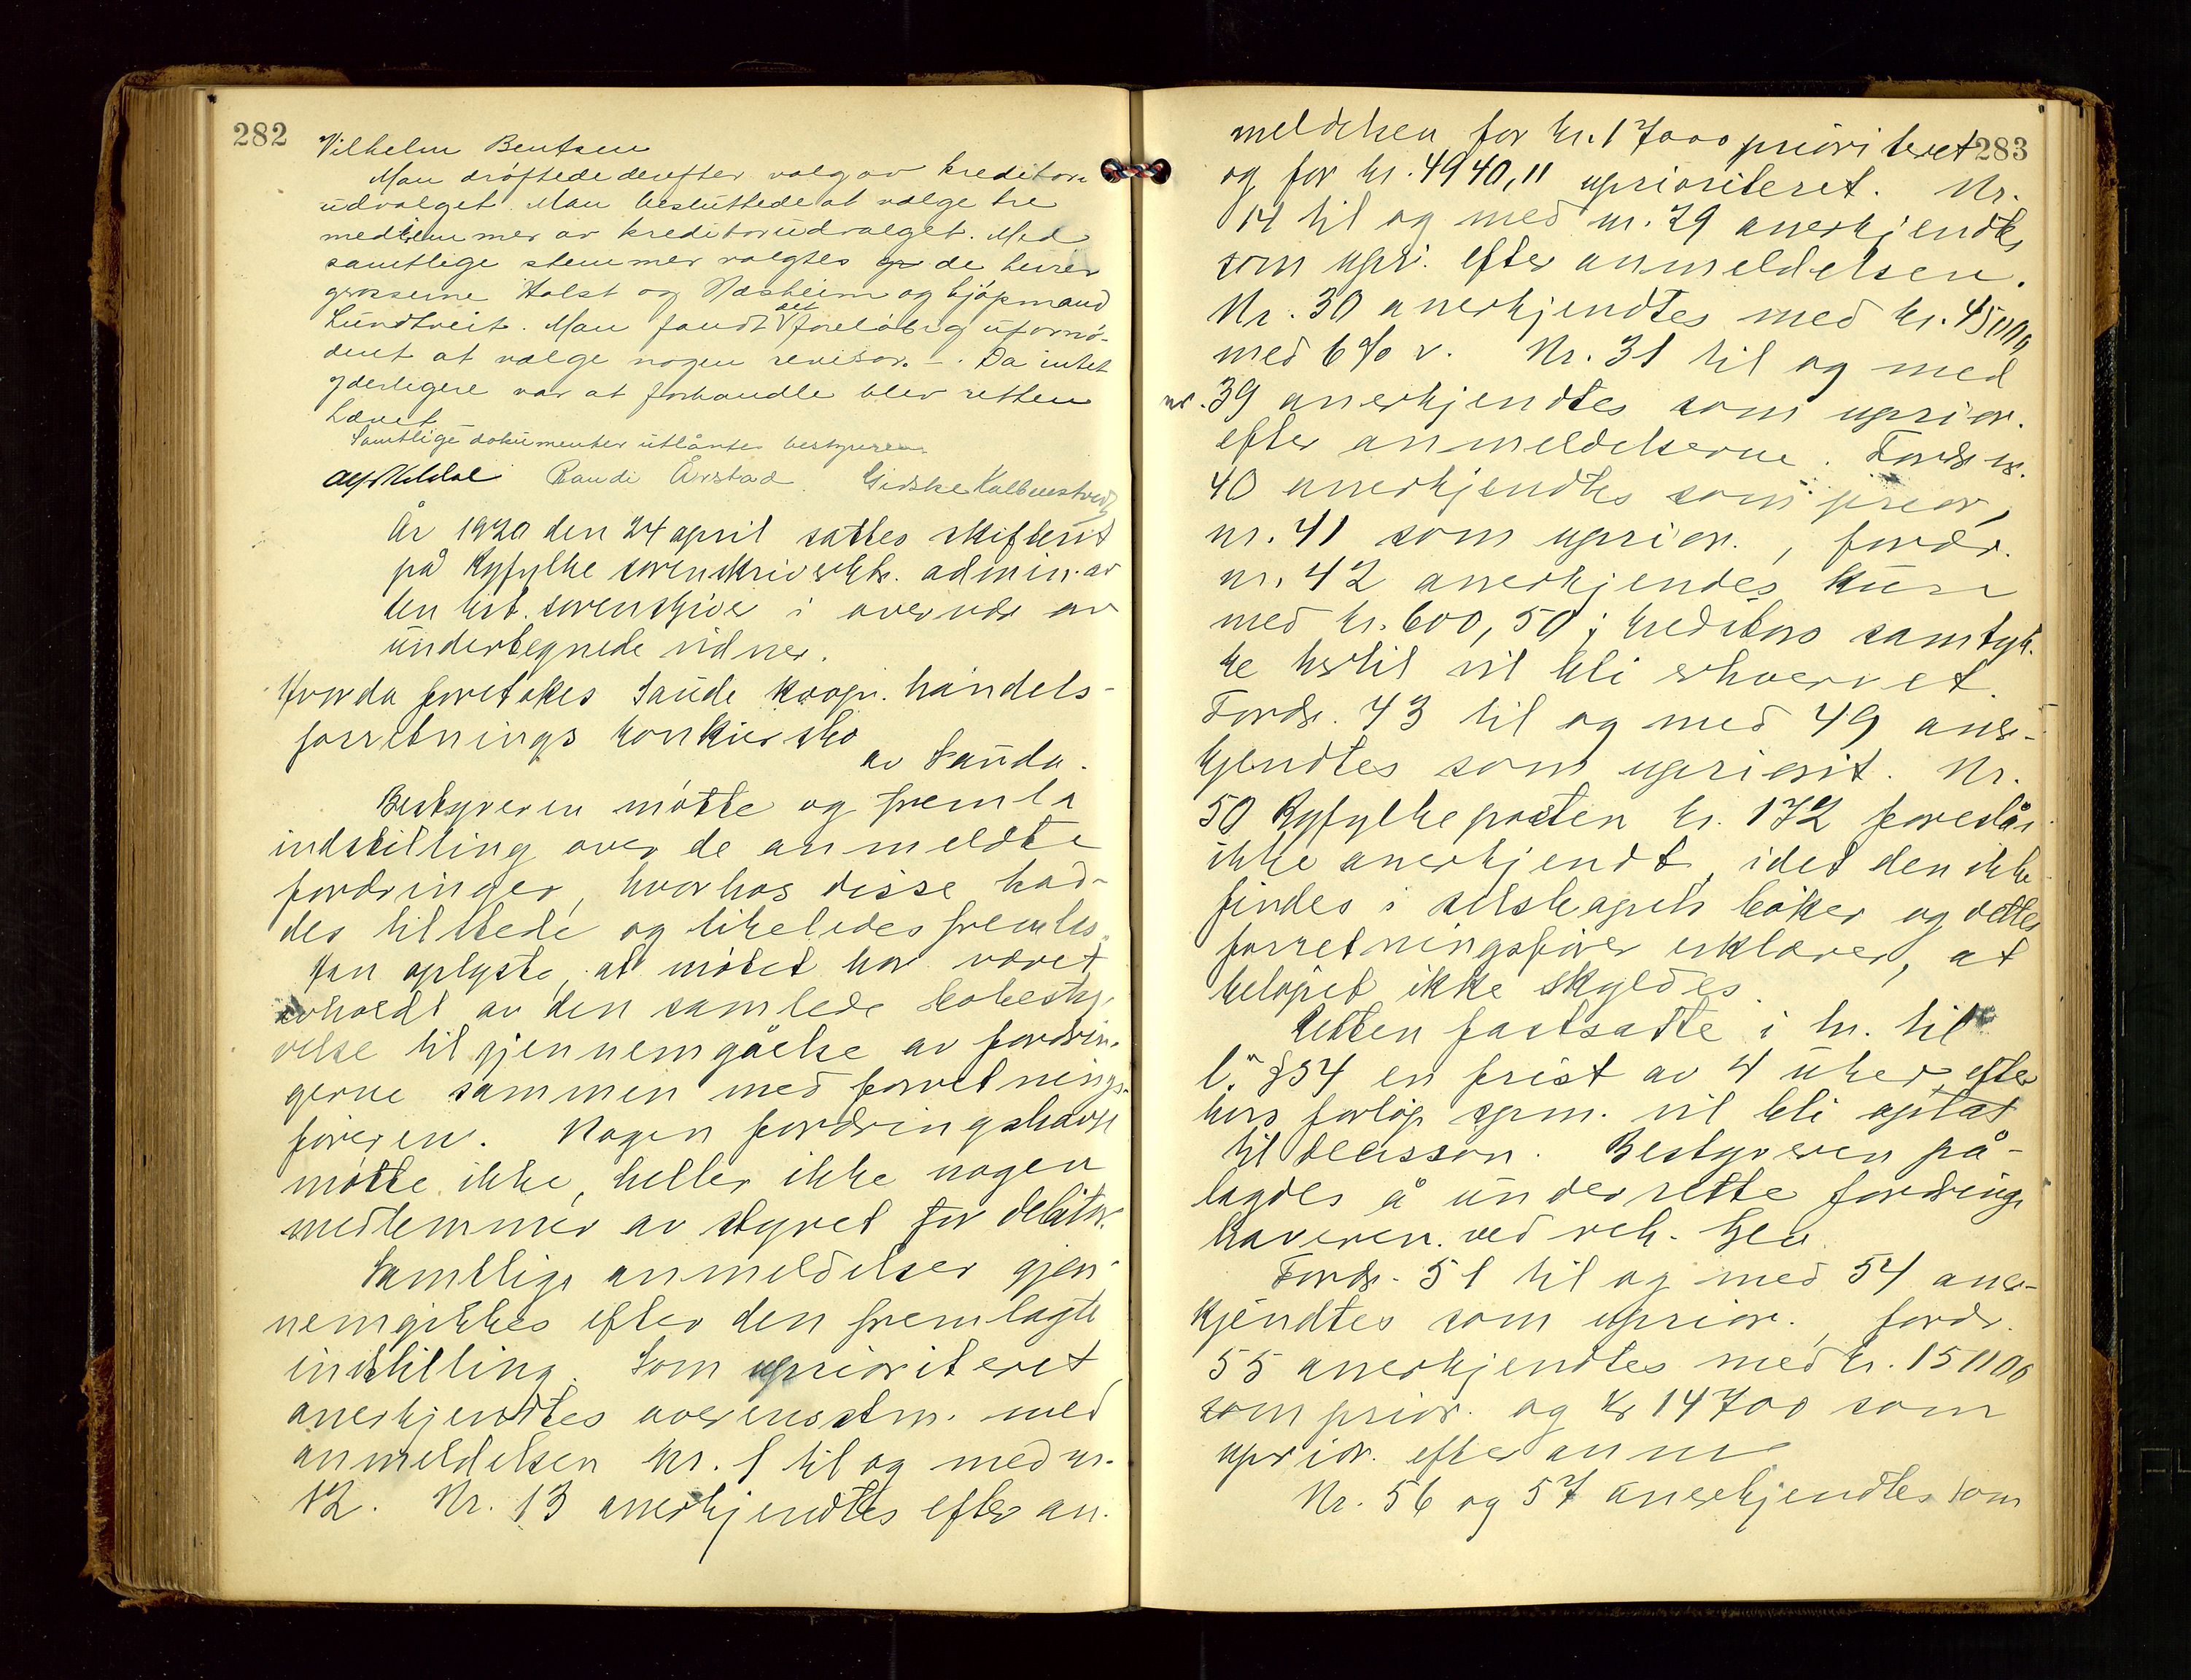 282
Vilhelm Bentsen
Man drøftede derefter valg av kreditor-
udvalget. Man besluttede at vælge tre
medlemmer av kreditorudvalget. Med
samtlige stemmer valgtes de herrer
grosserne Holst og Næsheim og kjøpmand
Lundtveit. Man fandt det foreløbig ufornø-
dent at vælge nogen revisor. - Da intet
yderligere var at forhandle blev retten
hævet
Samtlige dokumenter utlåntes bestyreren
Randi Årstad
År 1920 den 24 april sattes skifteret
på Ryfylke sorenskriverktr. admin. av
den kst. sorenskriver i overvær av
undertegnede vidner.
Hvorda foretokes Saude koop. handels-
forretnings konkursbo
av Sauda.
Bestyreren møtte og fremla
indstilling over de anmeldte
fordringer, hvorhos disse had-
des tilstede og likeledes fremlas.
Han oplyste, at møtet har været
avholdt av den samlede bobesty-
relse til gjennemgåelse av fordrin-
gerne sammen med forretnings-
føreren. Nogen fordringshaver
møtte ikke, heller ikke nogen
medlemmer av styret for debitor.
Samtlige anmeldelser gjen-
nemgikkes efter den fremlagte
indstilling. Som uprioriteret
anerkjendtes overensstm. med
anmeldelsen nr. 1 til og med nr.
12. Nr. 13 anerkjendtes efter an-
283
meldelsen for kr. 17000 prioriteret
og for kr. 4940,11 uprioriteret. Nr.
14 til og med nr. 29 anerkjendtes
som upri. efter anmeldelsen.
Nr. 30 anerkjendtes med kr.
med 6% r. Nr. 31 til og med
nr. 39 anerkjendtes som uprior.
efter anmeldelserne. Fordr. nr.
40 anerkjendtes som prior,
nr. 41 som uprior., fordr.
nr. 42 anerkjendes kun
med kr. 600,50; kreditors samtyk-
ke hertil vil bli erhvervet.
Fordr. 43 til og med 49 aner-
kjendtes som upriorit. Nr.
50 Ryfylkeposten kr. 172 foreslås
ikke anerkjendt, idet den ikke
findes i selskapets bøker og dettes
forretningsfører erklærer, at
beløpet ikke skyldes.
Retten fastsatte i h. til
l. § 54 en frist av 4 uker, efter
hvis forløp spm. vil bli optat
til decisson. Bestyreren på-
lagdes å underrette fordrings
haveren ved rek. brev
Fordr. 51 til og med 54 aner-
kjendtes som uprior., fordr.
55 anerkjendtes med kr.
som prior. og kr 14700 som
uprior. efter anm
Nr. 56 og 57 anerkjendtes som